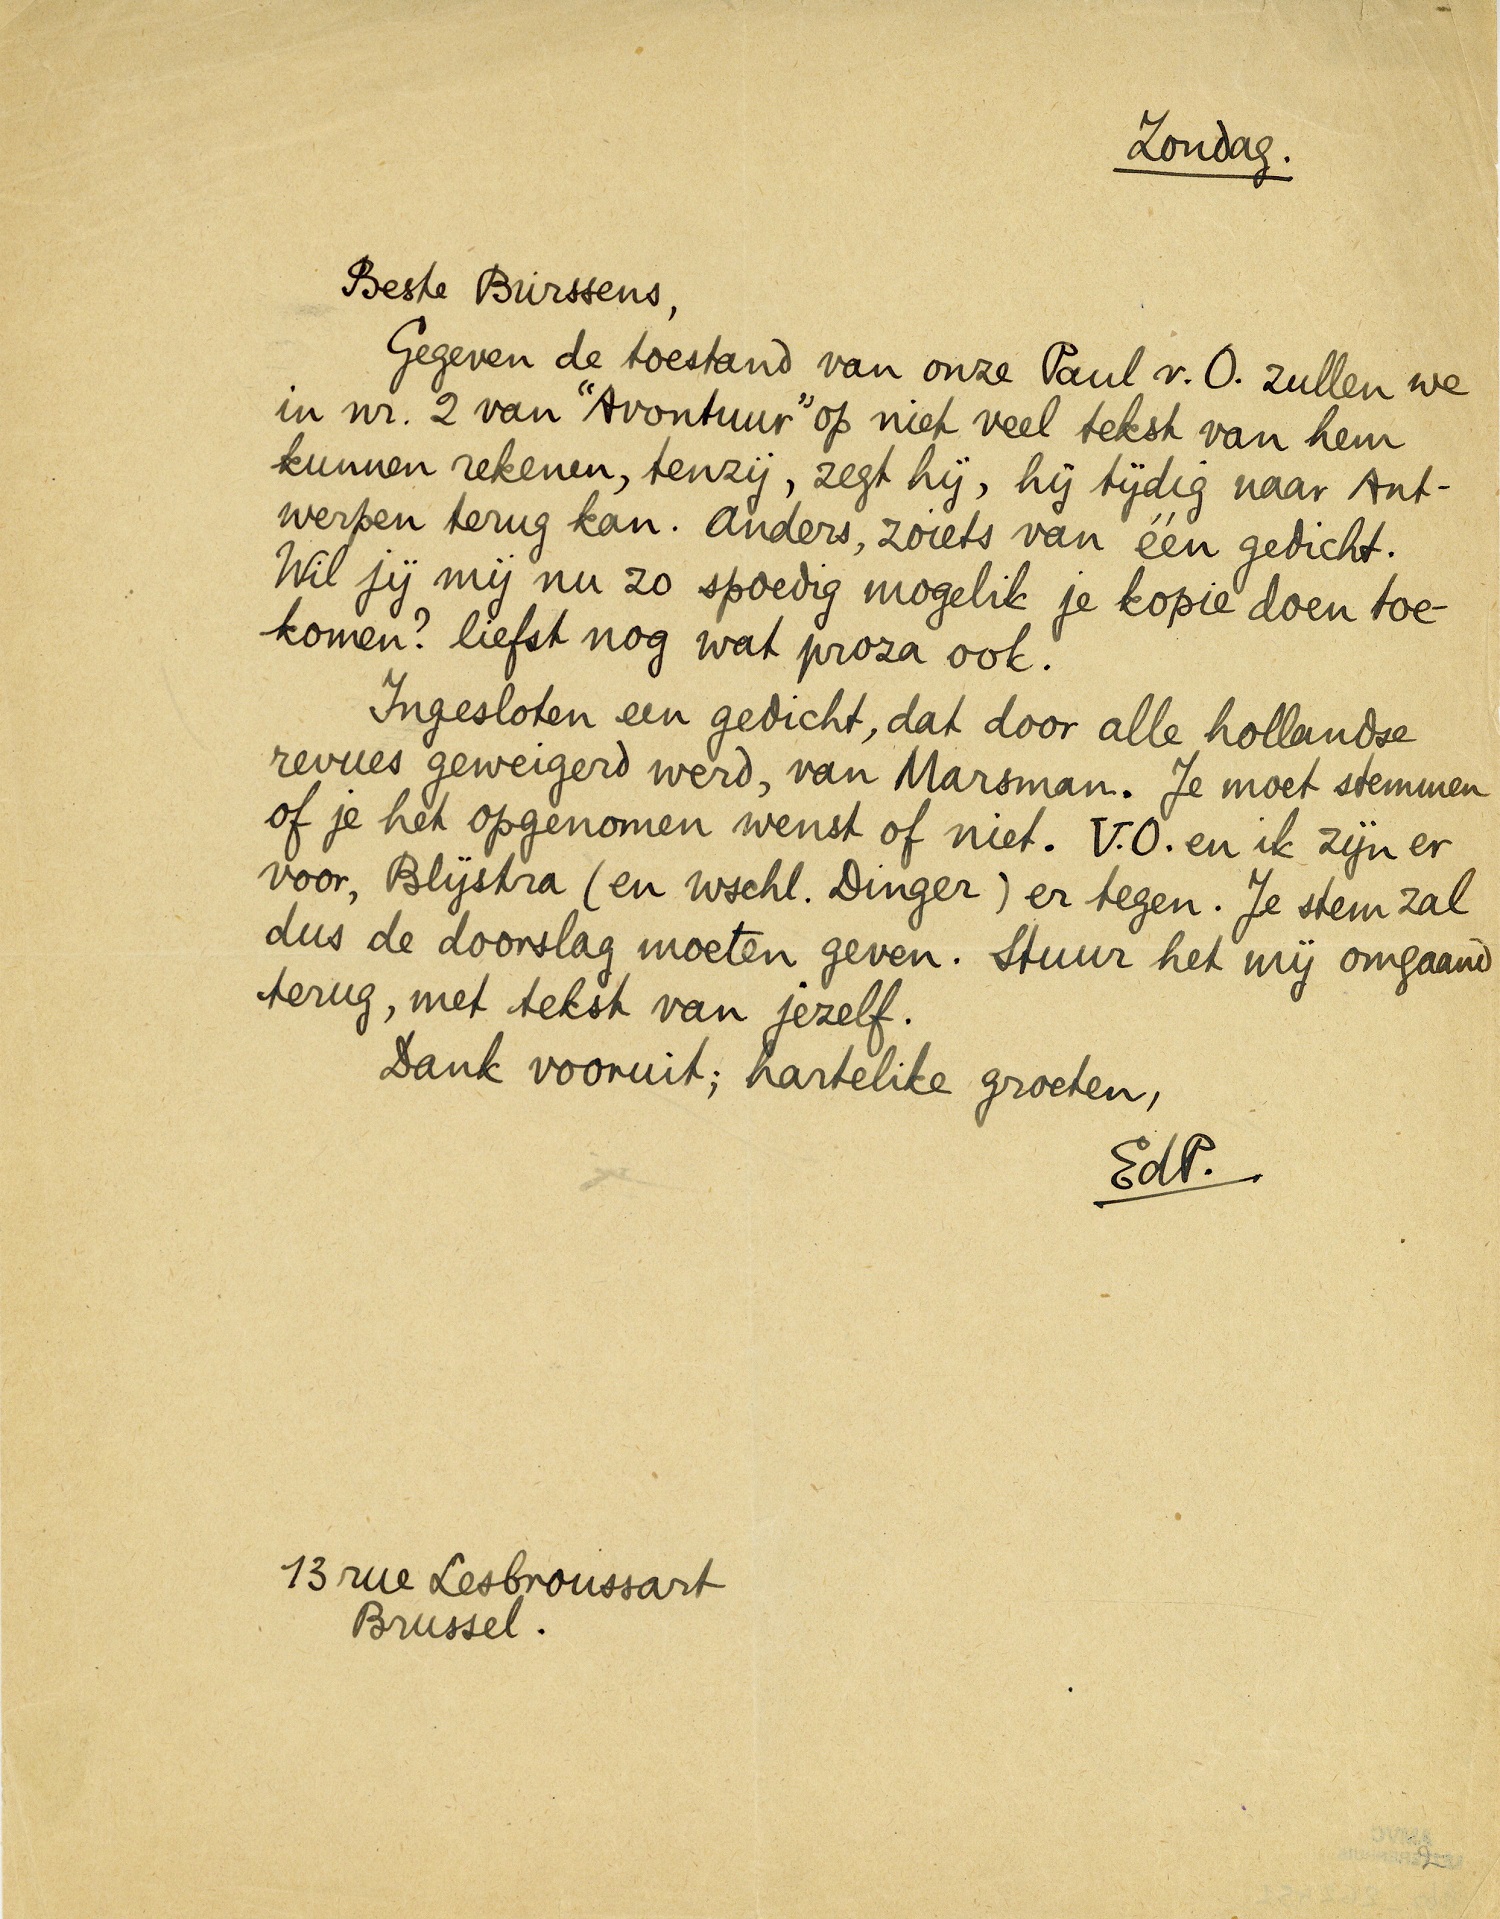 Zondag.
Beste Burssens,
Gegeven de toestand van onze Paul v. O. zullen we
in nr. 2 van "Avontuur" op niet veel tekst van hem
kunnen rekenen, tenzij, zegt hij, hij tijdig naar Ant-
werpen terug kan. Anders, zoiets van één gedicht.
Wil jij mij nu zo spoedig mogelik je kopie doen toe-
komen? liefst nog wat proza ook.
Ingesloten een gedicht, dat door alle hollandse
revues geweigerd werd, van Marsman. Je moet stemmen
of je het opgenomen wenst of niet. V.O. en ik zijn er
voor, Blijstra (en wschl. Dinger) er tegen. Je stem zal
dus de doorslag moeten geven. Stuur het mij omgaand
terug, met tekst van jezelf.
Dank vooruit; hartelike groeten,
EdP.
13 rue Lesbroussart
Brussel.